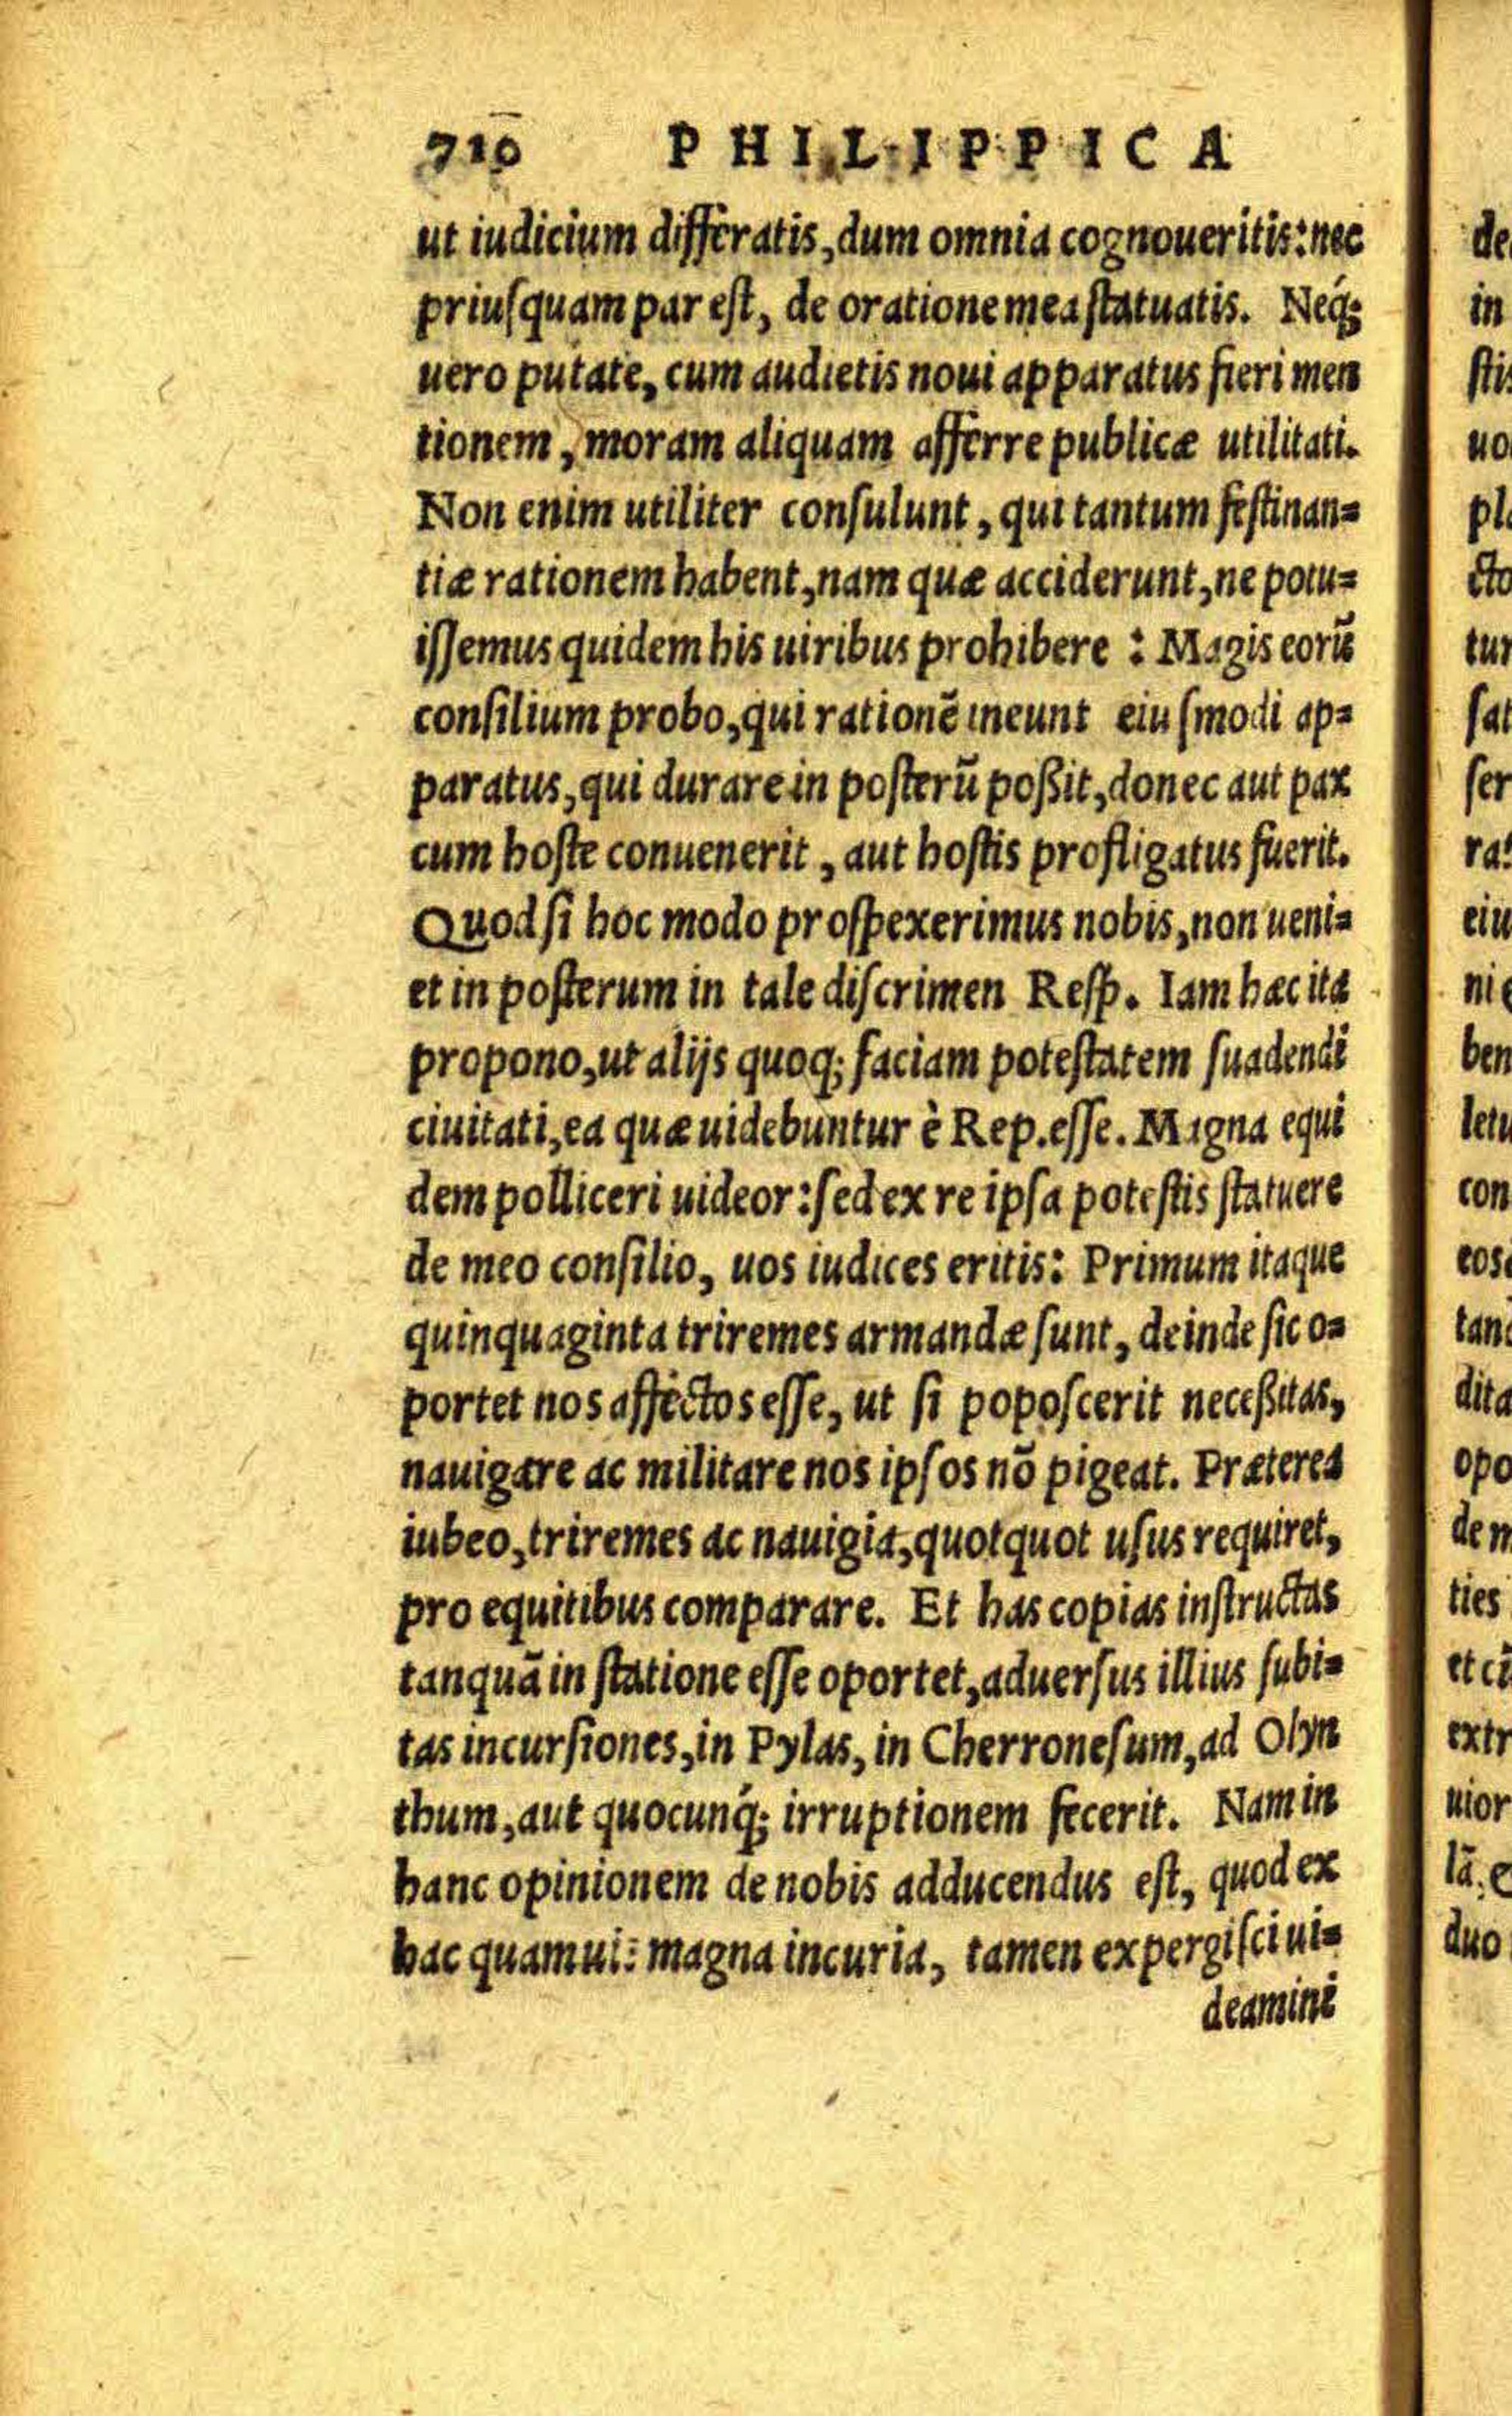 710 PHILIPPICA
ut iudicium differatis, dum omnia cognoueritis: nec
priuſquam par eſt, de oratione mea ſtatuatis. Neq́;
uero putate, cum audietis noui apparatus fieri men
tionem, moram aliquam afferre publicæ utilitati.
Non enim utiliter conſulunt, qui tantum feſtinan=
tiæ rationem habent, nam quæ acciderunt, ne potu=
iſſemus quidem his uiribus prohibere: Magis eorũ
conſilium probo, qui rationẽ ineunt eiuſmodi ap=
paratus, qui durare in poſterũ poßit, donec aut pax
cum hoſte conuenerit, aut hoſtis profligatus fuerit.
Quod ſi hoc modo proſpexerimus nobis, non ueni=
et in poſterum in tale diſcrimen Reſp. Iam hæc ita
propono, ut alijs quoq; faciam poteſtatem ſuadendi
ciuitati, ea quæ uidebuntur è Rep. eſſe. Magna equi
dem polliceri uideor: ſed ex re ipſa poteſtis ſtatuere
de meo conſilio, uos iudices eritis: Primum itaque
quinquaginta triremes armandæ ſunt, deinde ſic o=
portet nos affectos eſſe, ut ſi popoſcerit neceßitas,
nauigare ac militare nos ipſos nõ pigeat. Præterea
iubeo, triremes ac nauigia, quotquot uſus requiret,
pro equitibus comparare. Et has copias inſtructas
tanquã in ſtatione eſſe oportet, aduerſus illius ſubi=
tas incurſiones, in Pylas, in Cherroneſum, ad Olyn
thum, aut quocunq́; irruptionem fecerit. Nam in
hanc opinionem de nobis adducendus eſt, quod ex
hac quamuis magna incuria, tamen expergiſci ui=
deamini
de
in
ſtis
uo
pla
cto
tur
ſat
ſer
ra
eiu
ni
ben
letu
con
eos
tan
dita
opo
de
ties
et
extr
uior
lã,
duo